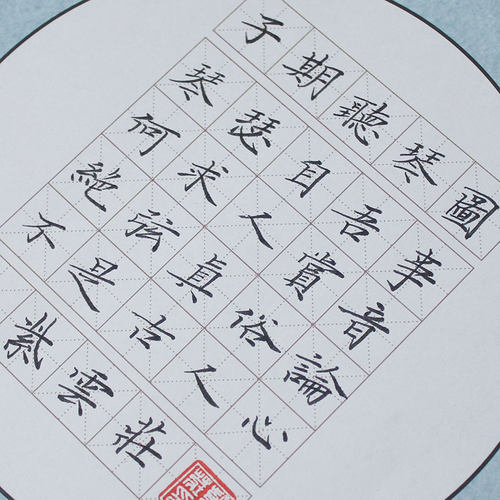 子期聽琴圖
琴瑟自吾事
何求人賞音
絶弦真俗論
不是古人心
紫雲莊